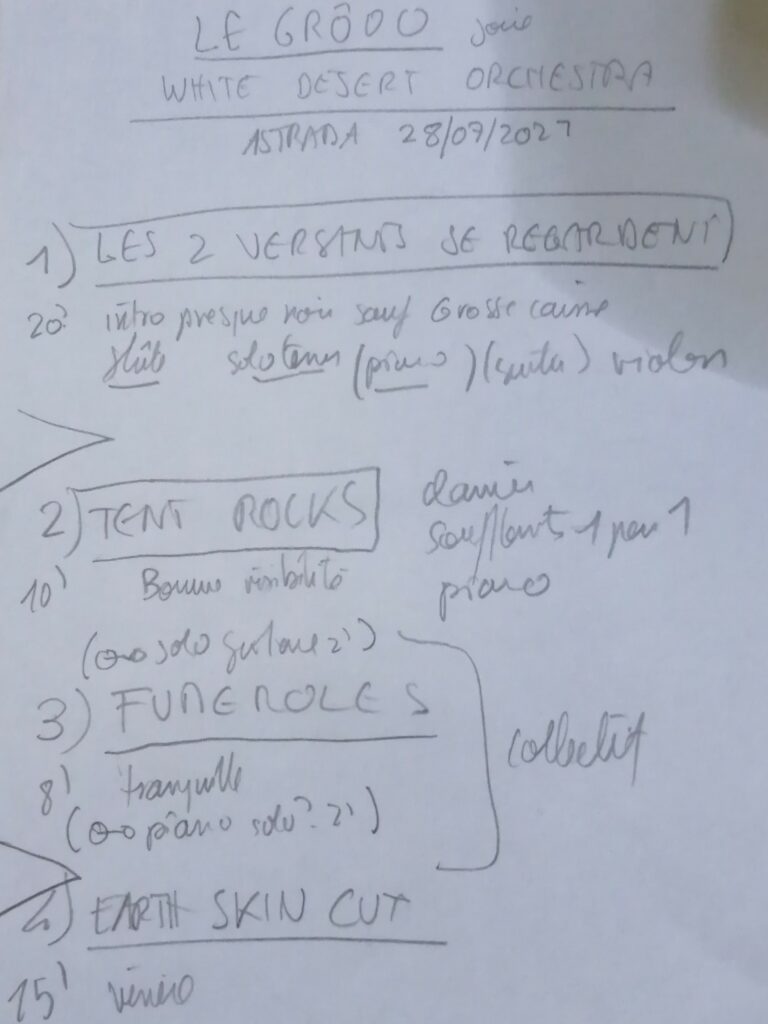 LE GRÔDO joue
WHITE DESERT ORCHESTRA
ASTRADA 28/07/2021
1) LES 2 VERSANTS SE REGARDENT
20' intro presque noir sauf Grosse caisse
flûte solo tenor (piano) (guitar) violon
2) TENT ROCKS
10' Bonne visibilité
soufflants 1 par 1
piano
(solo guitare 2')
3) FUMEROLES
8' tranquille
(piano solo? 2')
collectif
4) EARTH SKIN CUT
15'